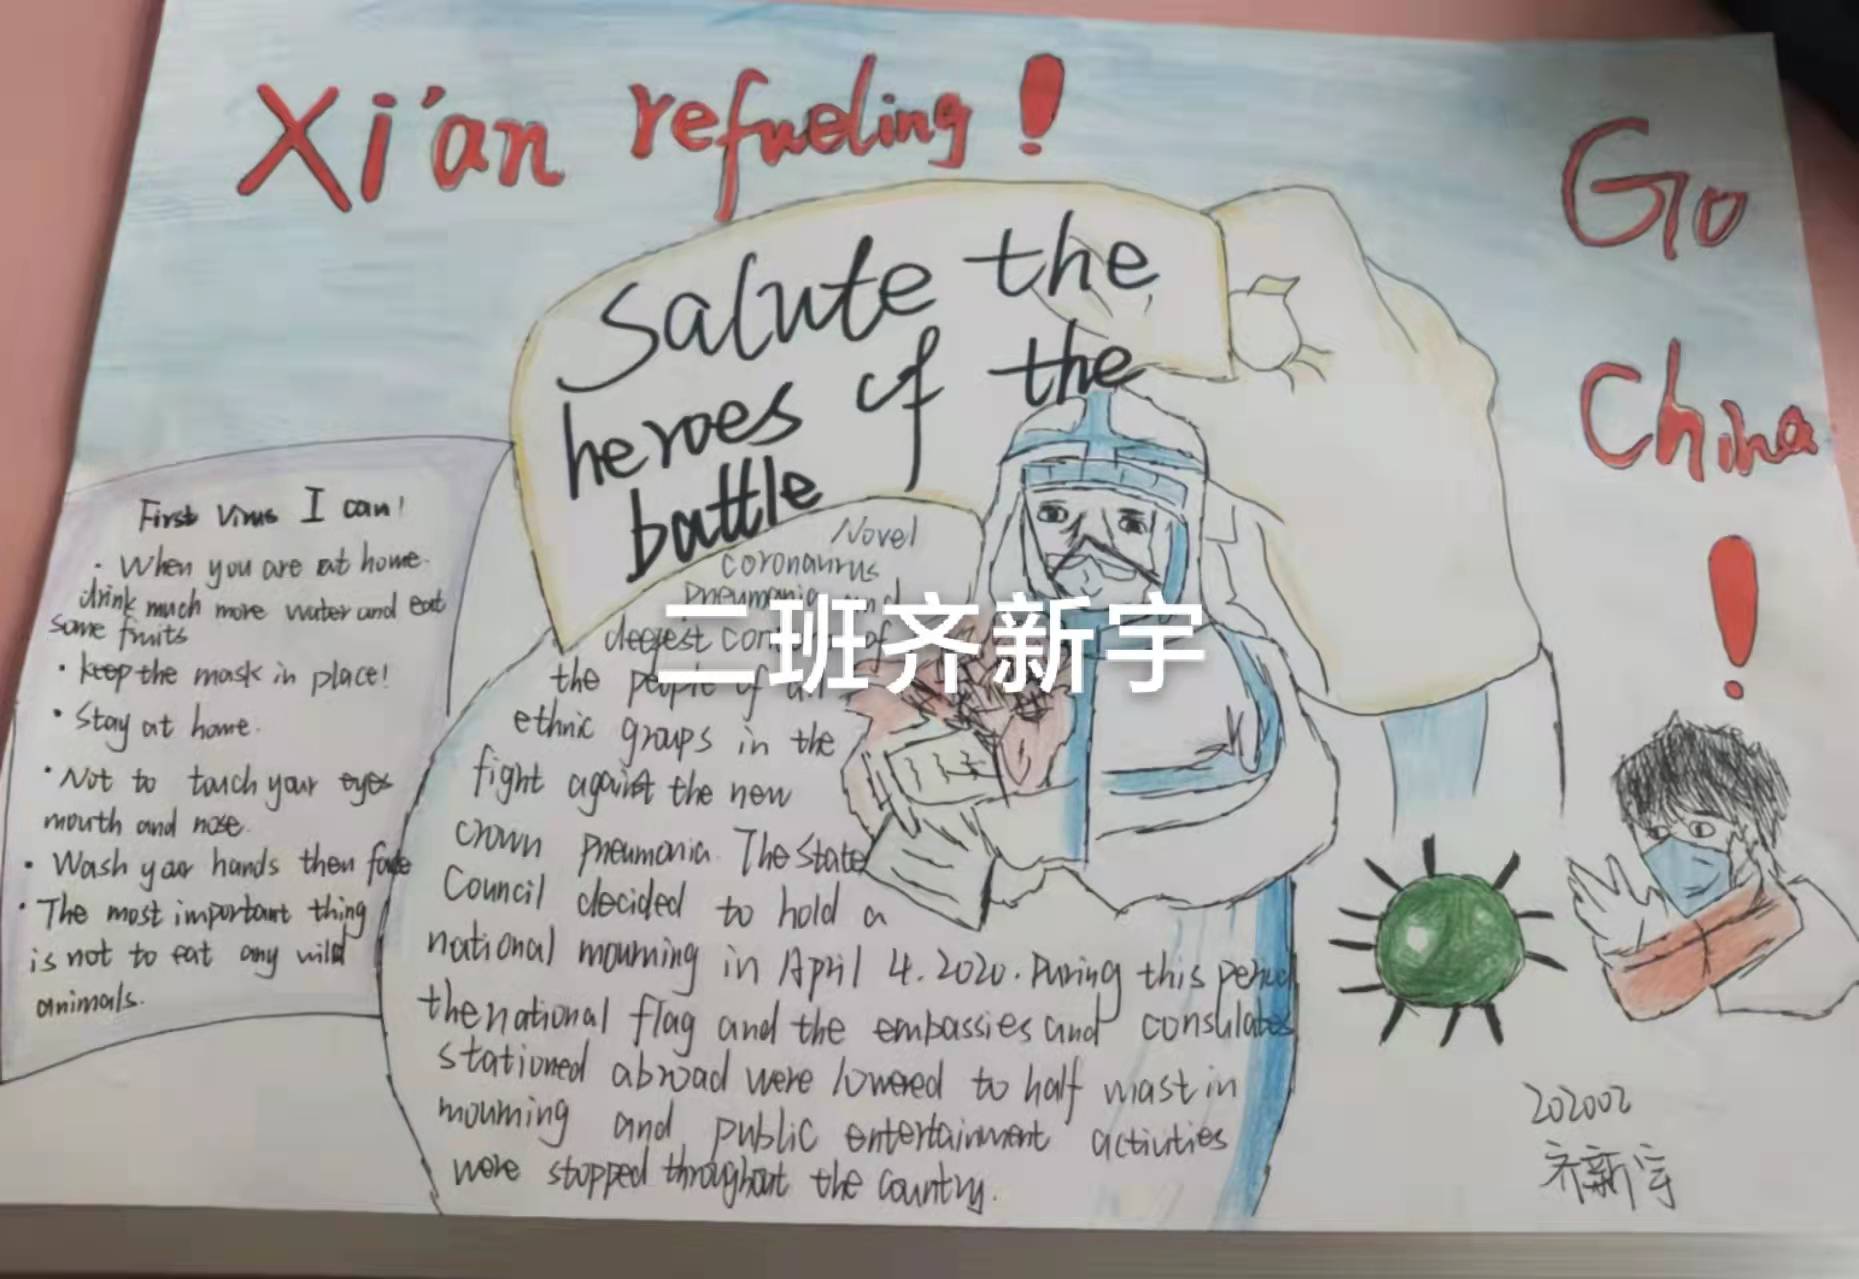 Xi'an refueling!
Go
China
!
Salute the
heroes of the
battle
First virus I can!
· When you are at home.
drink much more water and eat
some fruits
· keep the mask in place!
· Stay at home.
· Not to touch your eyes
mouth and nose.
· Wash your hands then face
· The most important thing
is not to eat any wild
animals.
Novel
coronaurus
pneumonia and
deepest con of
the people of all
ethnic groups in the
fight against the new
crown pneumonia. The State
Council decided to hold a
national mourning in April 4.2020. During this period
the national flag and the embassies and consulates
stationed abroad were lowered to half mast in
mourning and public entertainment activities
were stopped throughout the country.
二班齐新宇
202002
齐新宇